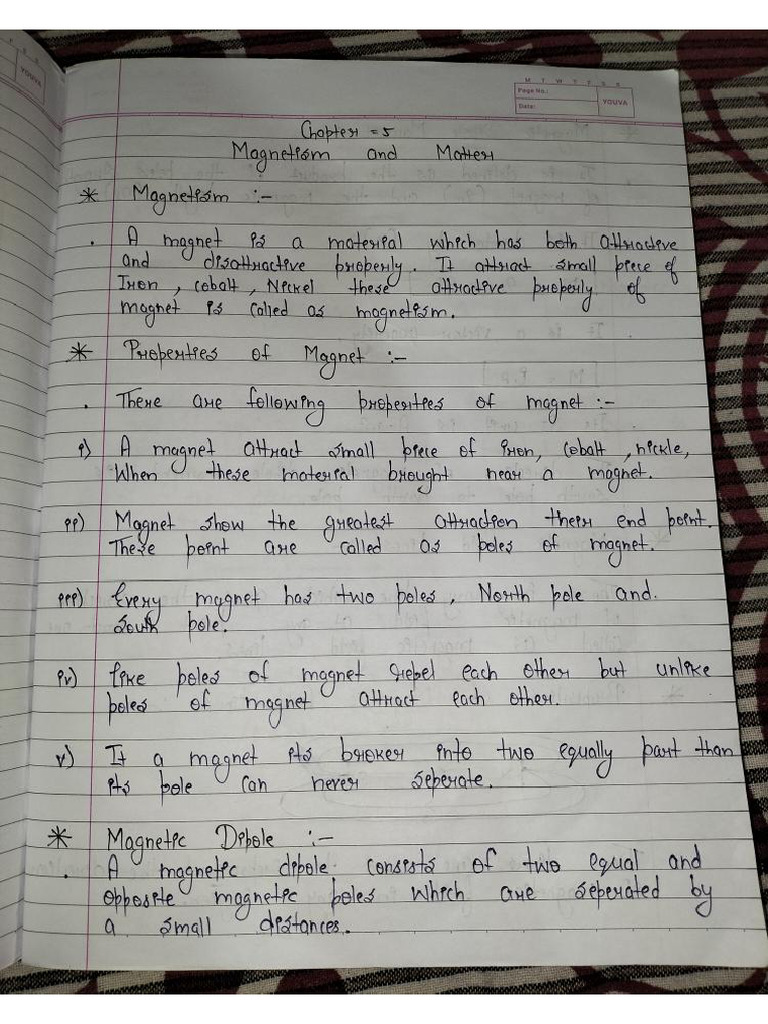 YOUVA
M T W T F S S
Page No.:
Date:
YOUVA
Chapter = 5
Magnetism and Matter
* Magnetism :-
. A magnet is a material which has both attractive
and disattractive properly. It attract small piece of
Iron, cobalt, Nickel these attractive properly of
magnet is called as magnetism.
* Properties of Magnet :-
. There are following properities of magnet :-
i) A magnet attract small piece of iron, cobalt, nickle,
When these material brought near a magnet.
ii) Magnet show the greatest attraction their end point.
These point are called as poles of magnet.
iii) Every magnet has two poles, North pole and.
south pole.
iv) like poles of magnet rebel each other but unlike
poles of magnet attract each other.
v) If a magnet its broker into two equally part than
its pole can never seperate.
* Magnetic Dipole :-
. A magnetic dipole consists of two equal and
opposite magnetic poles which are seperated by
a small distances.